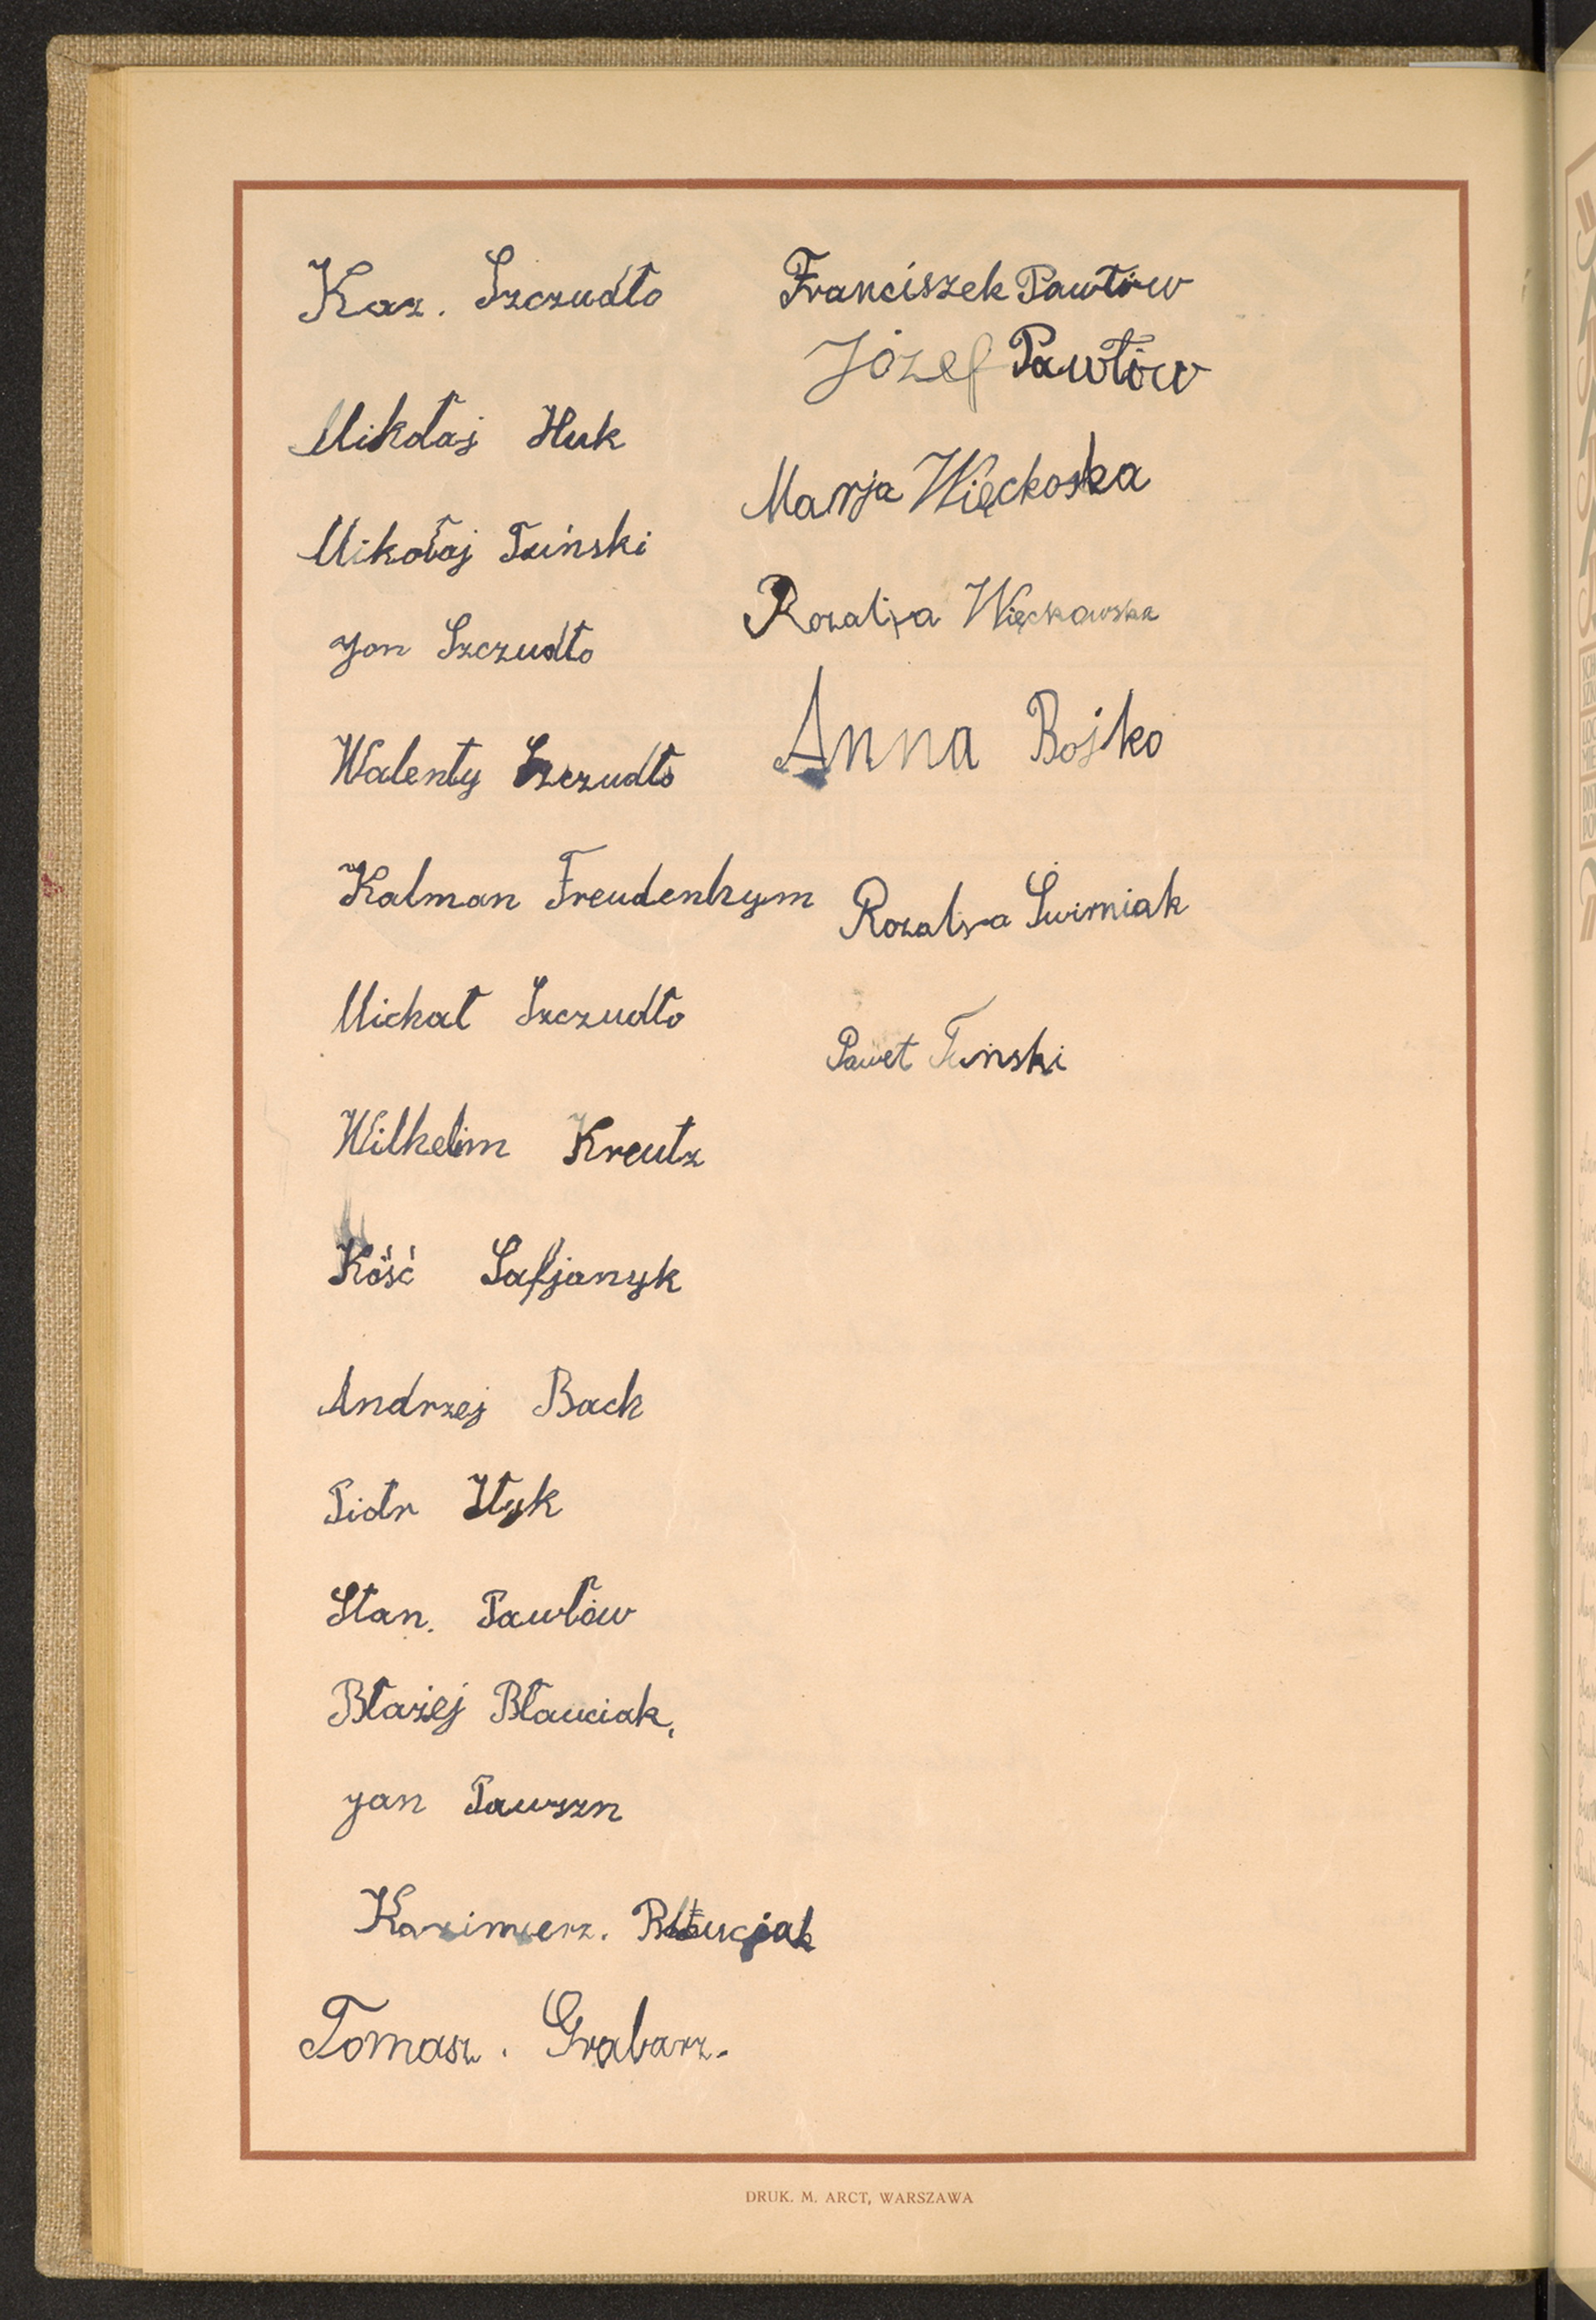 Kaz. Szczudło
Mikołaj Huk
Mikołaj Tuński
Jan Szczudło
Walenty Szczudło
Kalman Freudenhym
Michał Szczudło
Wilhelim Kreutz
Kość Safjanyk
Andrzej Bach
Piotr
Stan. Pawłów
Błażej Błauciak,
Jan
Kazimierz.
Tomasz. Grabarz.
Franciszek Pawłów
Józef Pawłów
Marja Więckoska
Rozalja Więckowska
Anna Bojko
Rozalja Swirniak
Paweł Tuński
DRUK. M. ARCT, WARSZAWA